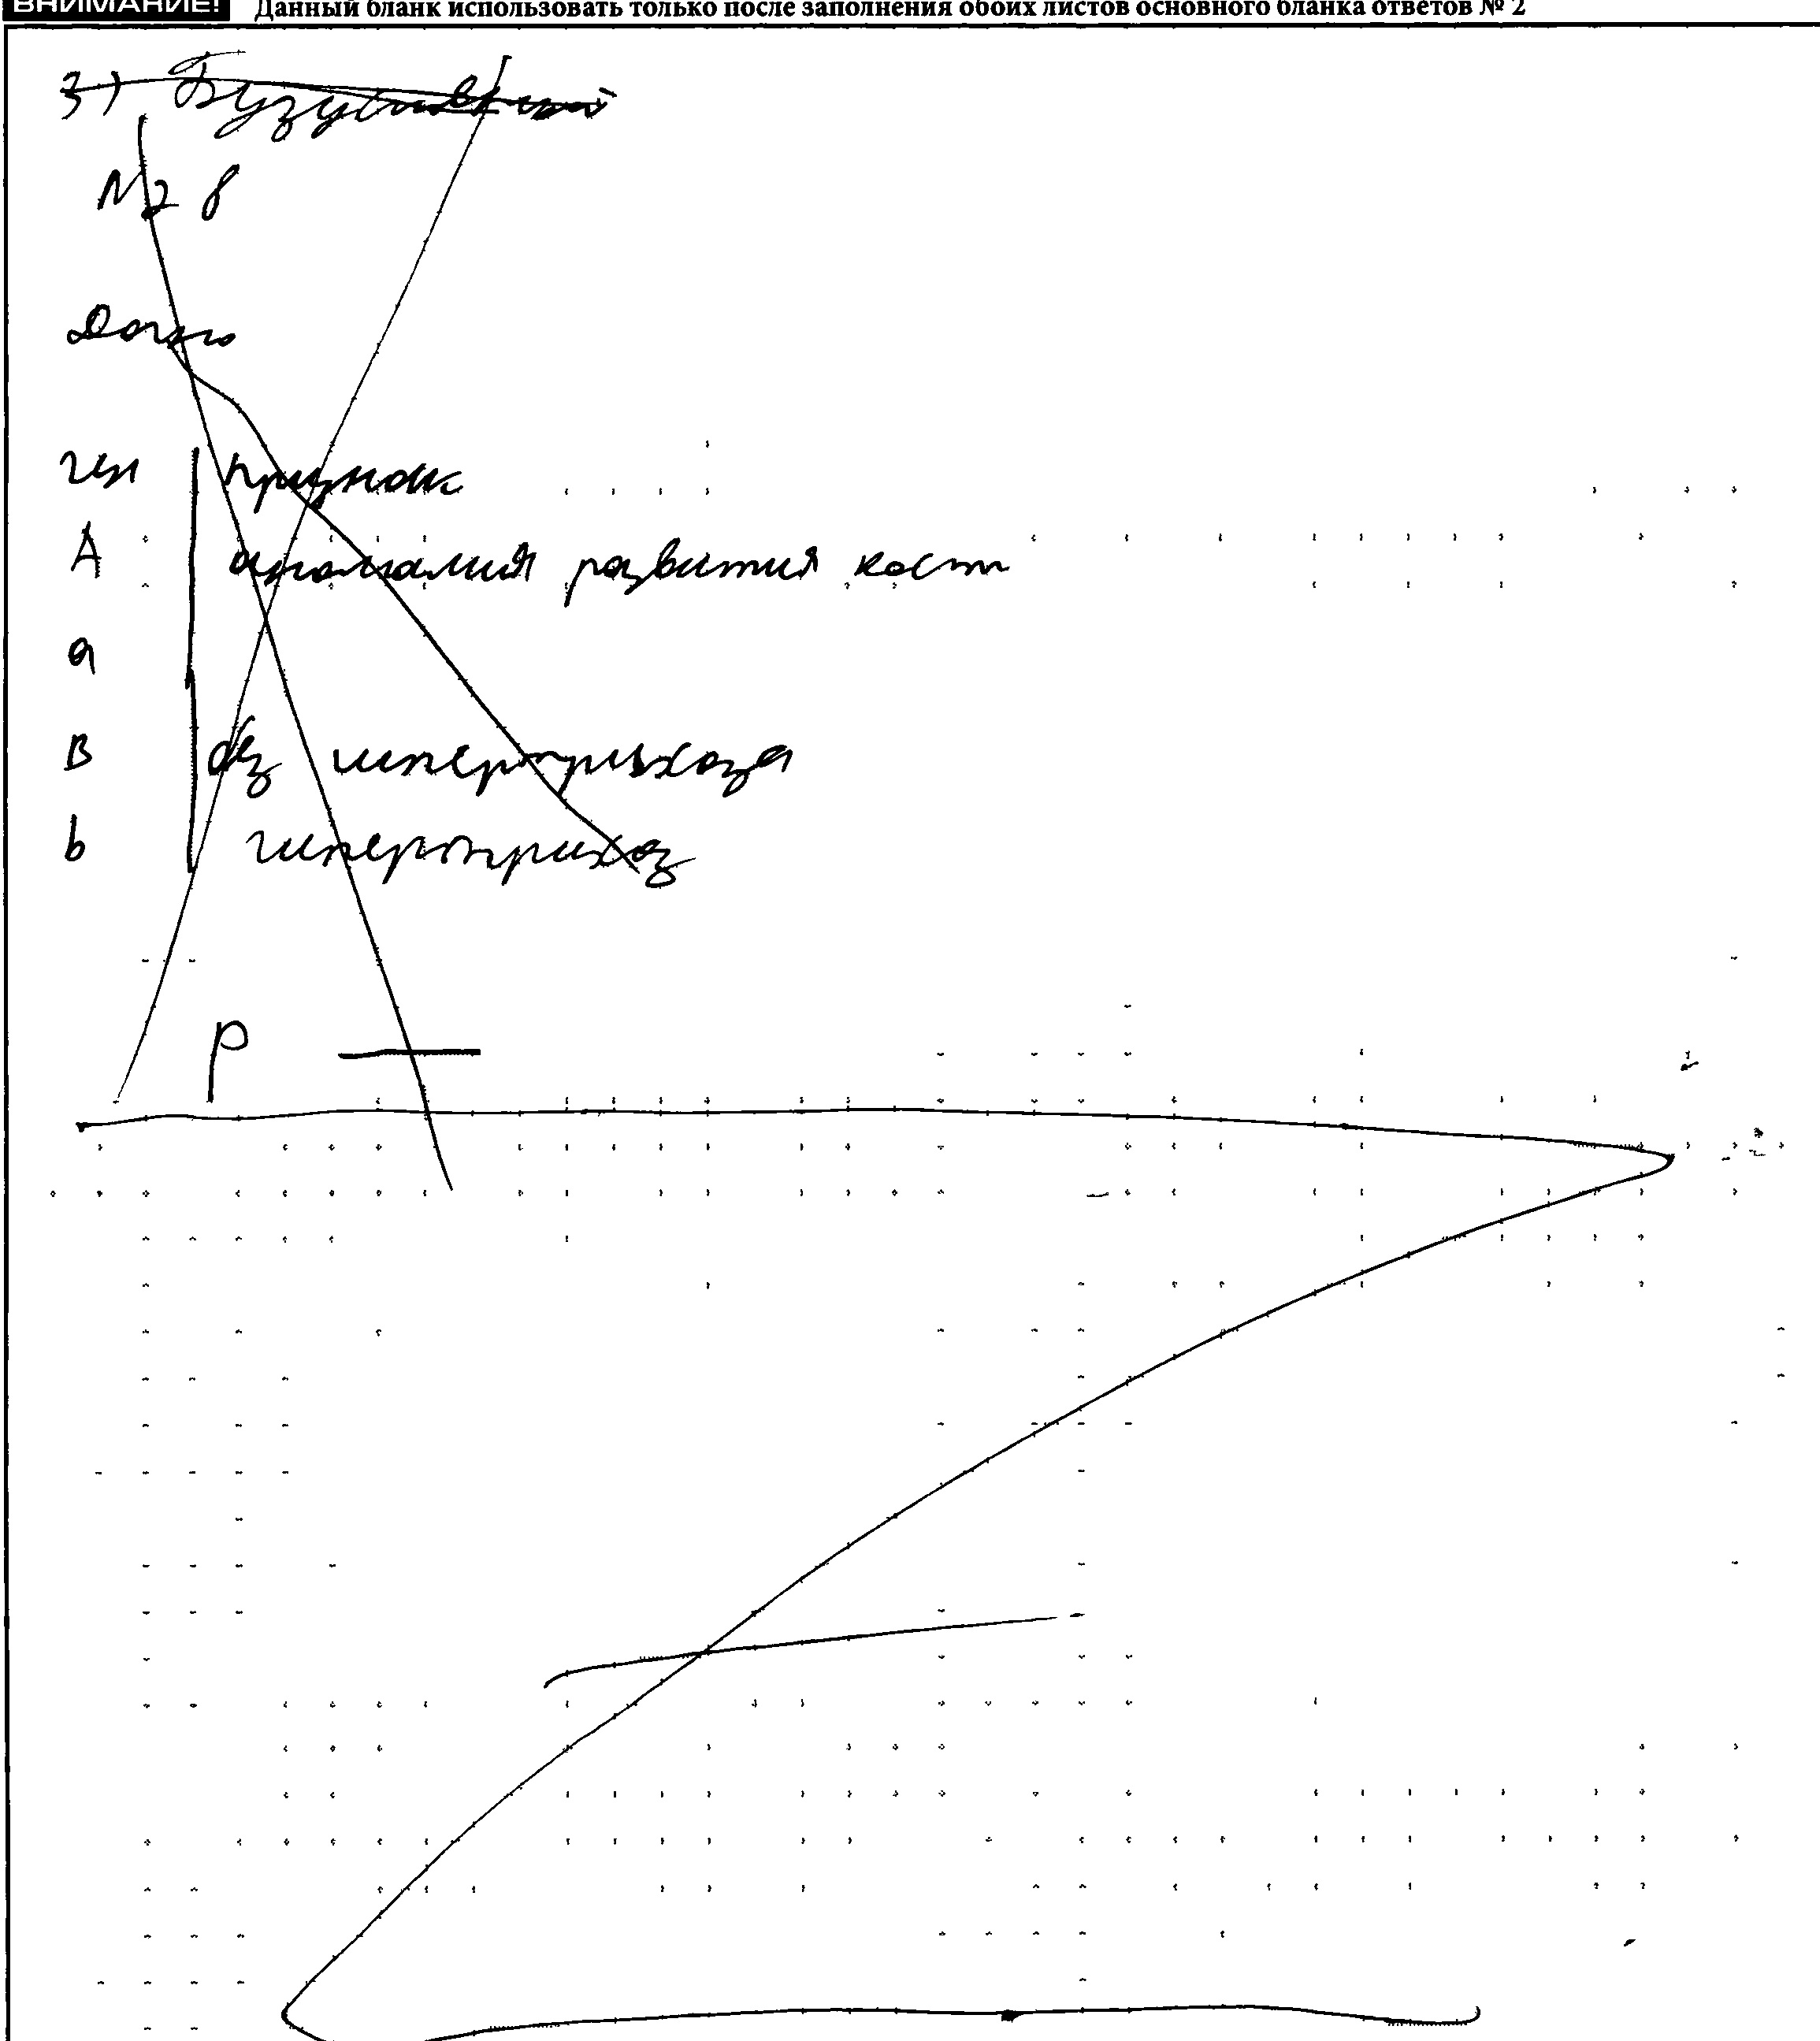 ВНИМАНИЕ! Данный бланк использовать только после заполнения обоих листов основного бланка ответов № 2
3)
№ 8
Дано
ген признак
A аномалия развития кост
a
B без гипертрихоза
b гипертрихоз
P